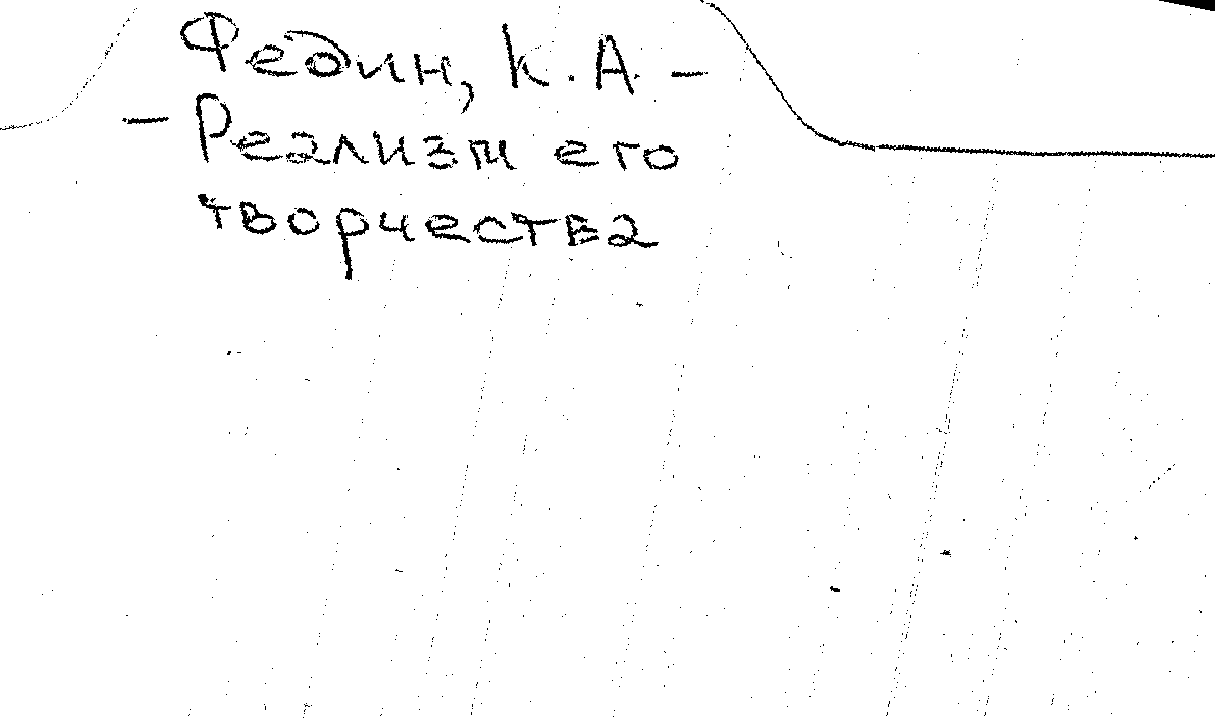 Федин, К.А. –
– Реализм его
творчества